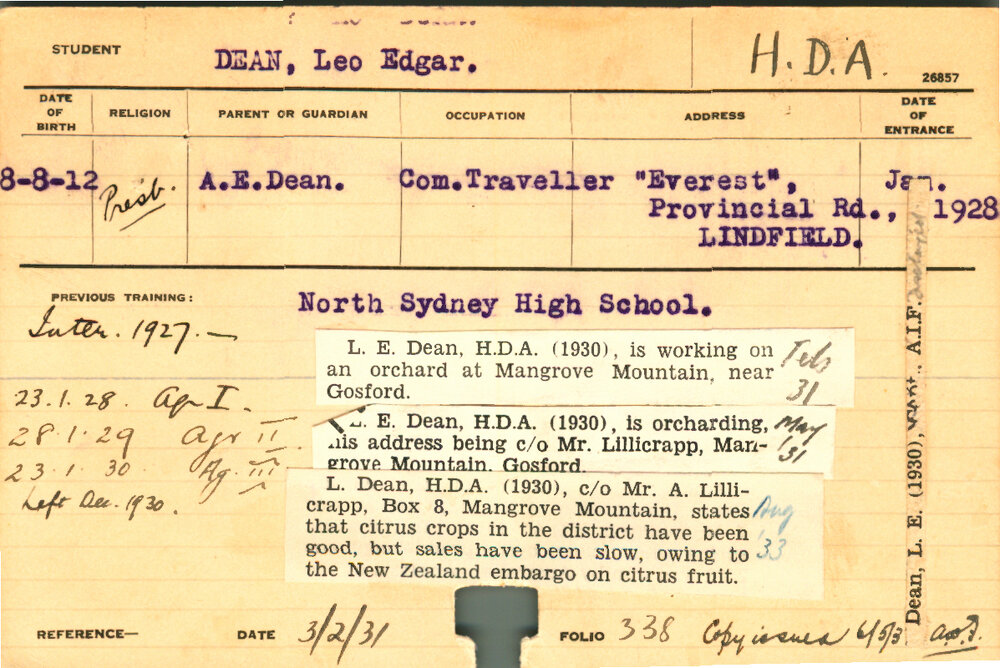 STUDENT DEAN, Leo Edgar. H.D.A. 26857
DATE OF BIRTH RELIGION PARENT OR GUARDIAN OCCUPATION ADDRESS DATE OF ENTRANCE
8-8-12 Presb. A.E.Dean. Com.Traveller "Everest", Jan.
Provincial Rd., 1928
LINDFIELD.
PREVIOUS TRAINING: North Sydney High School.
Inter. 1927.—
L. E. Dean, H.D.A. (1930), is working on
an orchard at Mangrove Mountain, near
Gosford.
Feb
31
23.1.28. Ag I.
28.1.29 Agr II
23.1.30. Ag III
Left Dec. 1930.
E. Dean, H.D.A. (1930), is orcharding,
his address being c/o Mr. Lillicrapp, Man-
grove Mountain, Gosford.
May
'31
L. Dean, H.D.A. (1930), c/o Mr. A. Lilli-
crapp, Box 8, Mangrove Mountain, states
that citrus crops in the district have been
good, but sales have been slow, owing to
the New Zealand embargo on citrus fruit.
Aug
'33
Dean, L. E. (1930), A.I.F.
REFERENCE— DATE 3/2/31 FOLIO 338 Copy issued 6/5/3